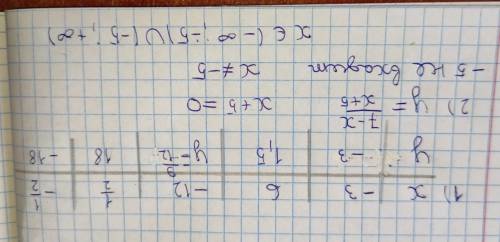 1) x | -3 | 6 | -12 | 1/2 | -1/2
y | -3 | 1,5 | y = 9/-12 | 18 | -18
2) y = (7-x)/(x+5) x+5 = 0
-5 не входит x ≠ -5
x ∈ (-∞ ; -5) ∪ (-5 ; +∞)